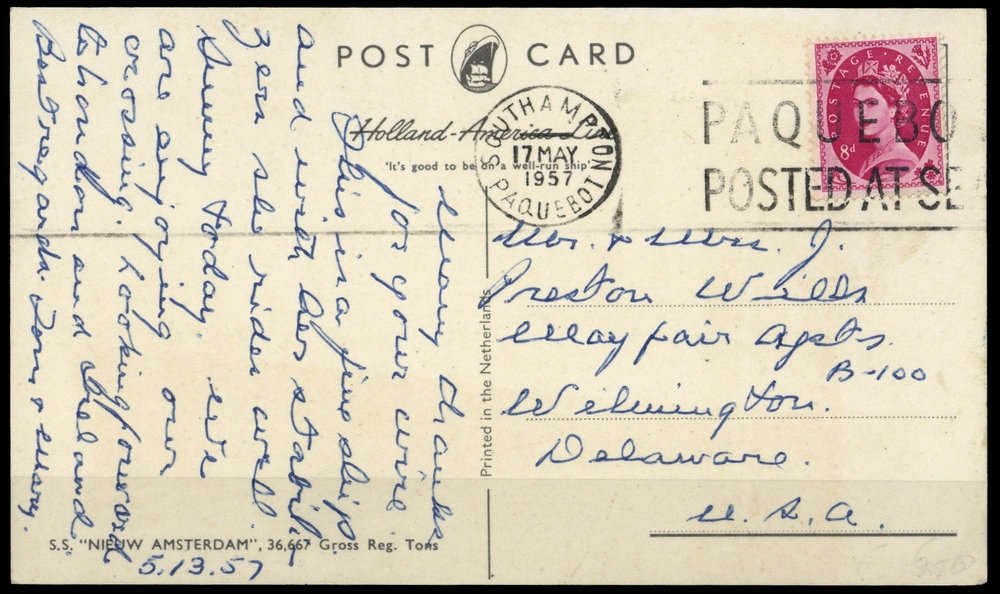 POST CARD
Holland-America Line
'It's good to be on a well-run ship'
SOUTHAMPTON
17 MAY
1957
PAQUEBOT
PAQUEBO
POSTED AT SE
POSTAGE REVENUE
8d
Many thanks
for your wire.
This is a fine ship
and with her stabil-
izers she rides well.
Sunny today. We
are enjoying our
crossing. Looking forward
to London and Ireland.
Best regards. Tom & Mary.
5.13.57
Mr. & Mrs. J.
Preston Wills
Mayfair Apts.
B-100
Wilmington.
Delaware.
U.S.A.
Printed in the Netherlands
S.S. "NIEUW AMSTERDAM", 36,667 Gross Reg. Tons